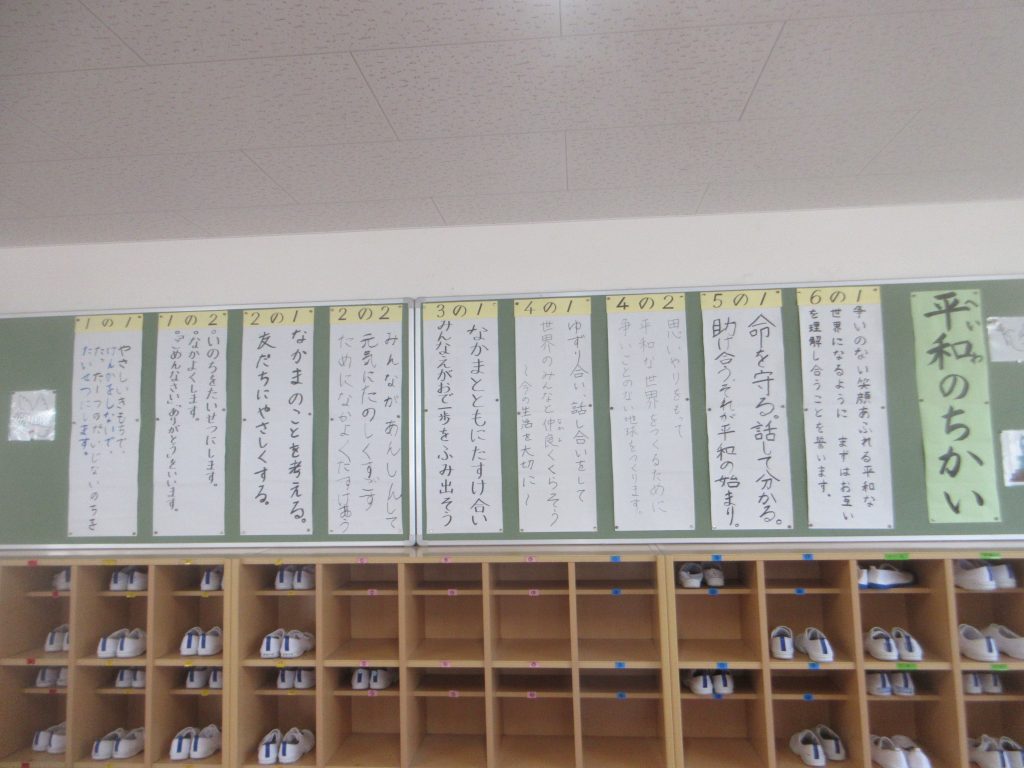 平和のちかい
へいわ
6の1
争いのない笑顔あふれる平和な
世界になるように まずはお互い
を理解し合うことを誓います。
5の1
命を守る。話して分かる。
助け合う。それが平和の始まり。
4の2
思いやりをもって
平和な世界をつくるために
争いごとのない地球をつくります。
4の1
ゆずり合い、話し合いをして
世界のみんなと仲良くくらそう
〜今の生活を大切に〜
3の1
なかまとともにたすけ合い
みんなえがおで一歩をふみ出そう
2の2
みんながあんしんして
元気にたのしくすごす
ためになかよくたすけあう
2の1
なかまのことを考える。
友だちにやさしくする。
1の2
いのちをたいせつにします。
なかよくします。
「ごめんなさい」「ありがとう」をいいます。
1の1
やさしいきもちで、
けんかをしないで
たいせつにします。